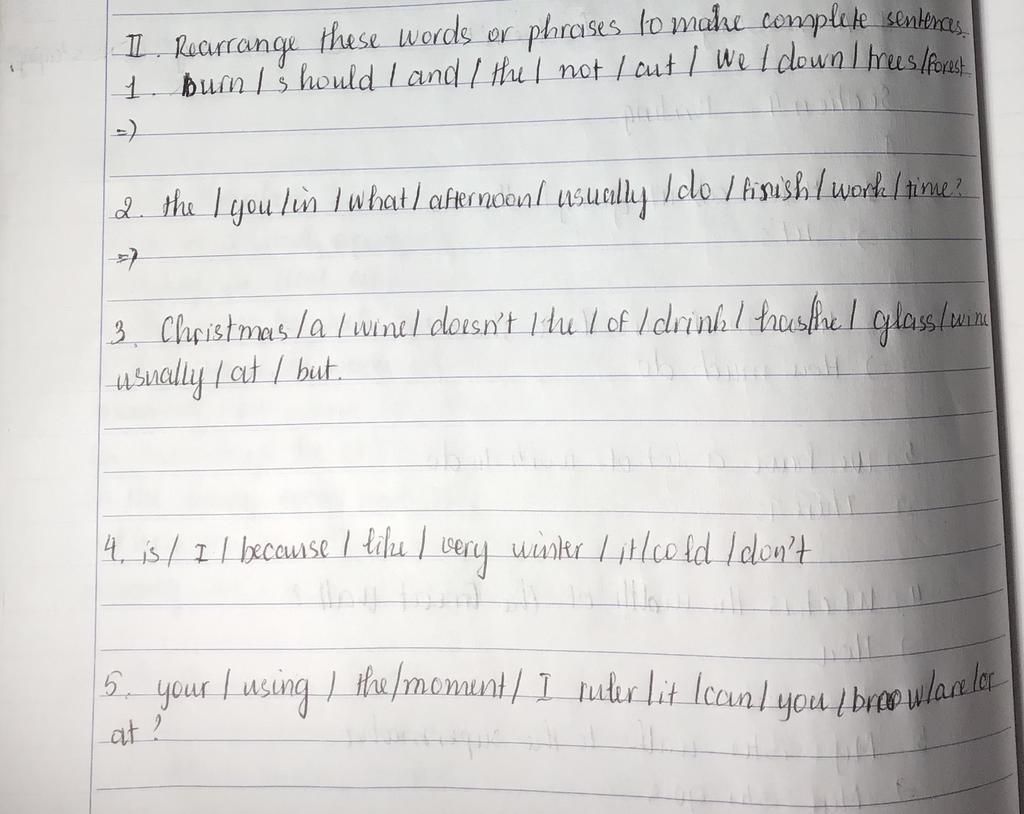 II. Rearrange these words or phrases to make complete sentences.
1. burn / should / and / the / not / cut / we / down / trees / forest
=)
2. the / you / in / what / afternoon / usually / do / finish / work / time?
=)
3. Christmas / a / wine / doesn't / the / of / drink / has / he / glass / wine
usually / at / but.
4. is / I / because / like / very winter / it / cold / don't
5. your / using / the / moment / I ruler / it / can / you / brrow / are / or
at?